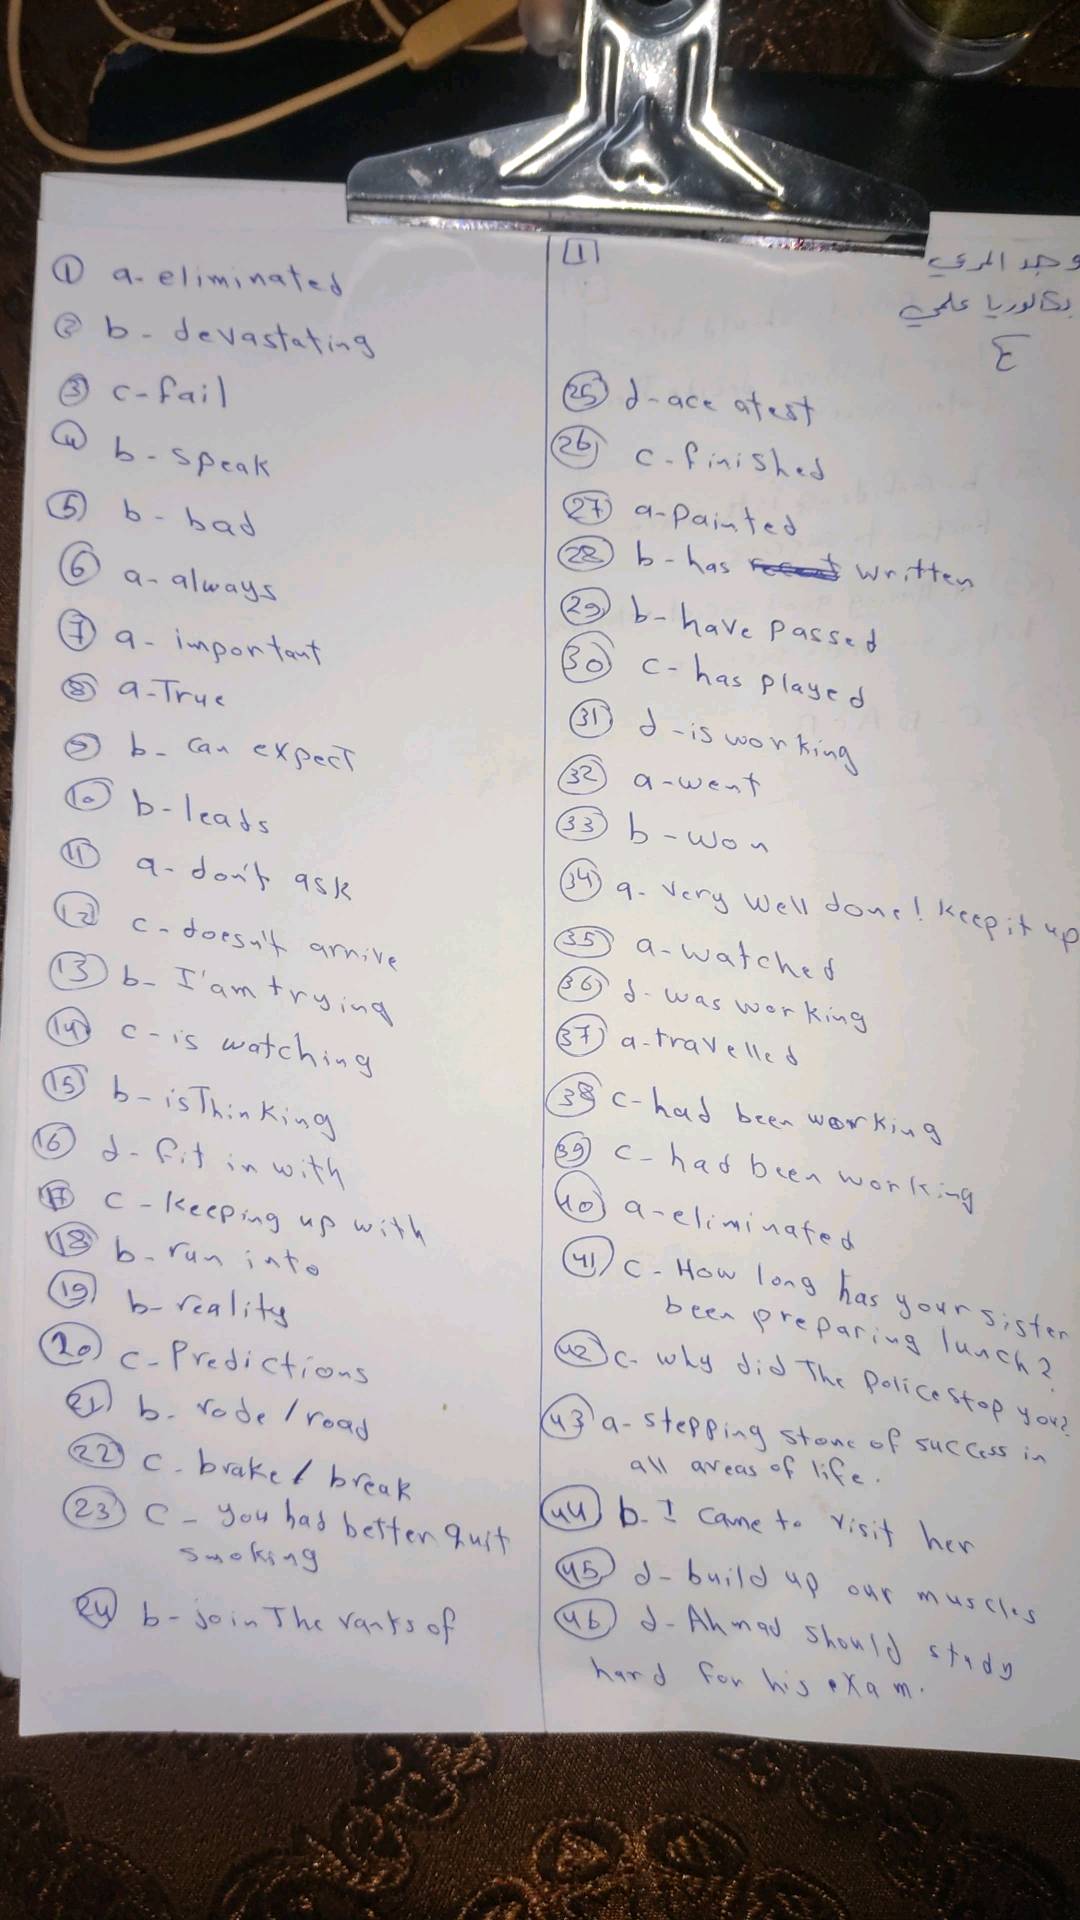 ① a- eliminated
② b - devastating
③ c-fail
④ b - speak
⑤ b - bad
⑥ a- always
⑦ a- important
⑧ a-True
⑨ b- can expect
⑩ b-leads
⑪ a- don't ask
⑫ c- doesn't arrive
⑬ b- I'am trying
⑭ c-is watching
⑮ b-isThinking
⑯ d- fit in with
⑰ c - keeping up with
⑱ b-run into
⑲ b-reality
⑳ c-Predictions
㉑ b- rode / road
㉒ c- brake / break
㉓ c - you had better quit
smoking
㉔ b-join The ranks of
1
وجد المرعي
بكالوريا علمي
ع
㉕ d-ace atest
㉖ c-finished
㉗ a-Painted
㉘ b-has written
㉙ b-have passed
㉚ c-has played
㉛ d-is working
㉜ a-went
㉝ b-won
㉞ a- very well done! keep it up
㉟ a-watched
㊱ d- was working
㊲ a-travelled
㊳ c-had been working
㊴ c-had been working
㊵ a-eliminated
㊶ c- How long has your sister
been preparing lunch?
㊷ c- why did The Police stop you?
㊸ a- stepping stone of success in
all areas of life.
㊹ b- I came to visit her
㊺ d- build up our muscles
㊻ d- Ahmad should study
hard for his exam.